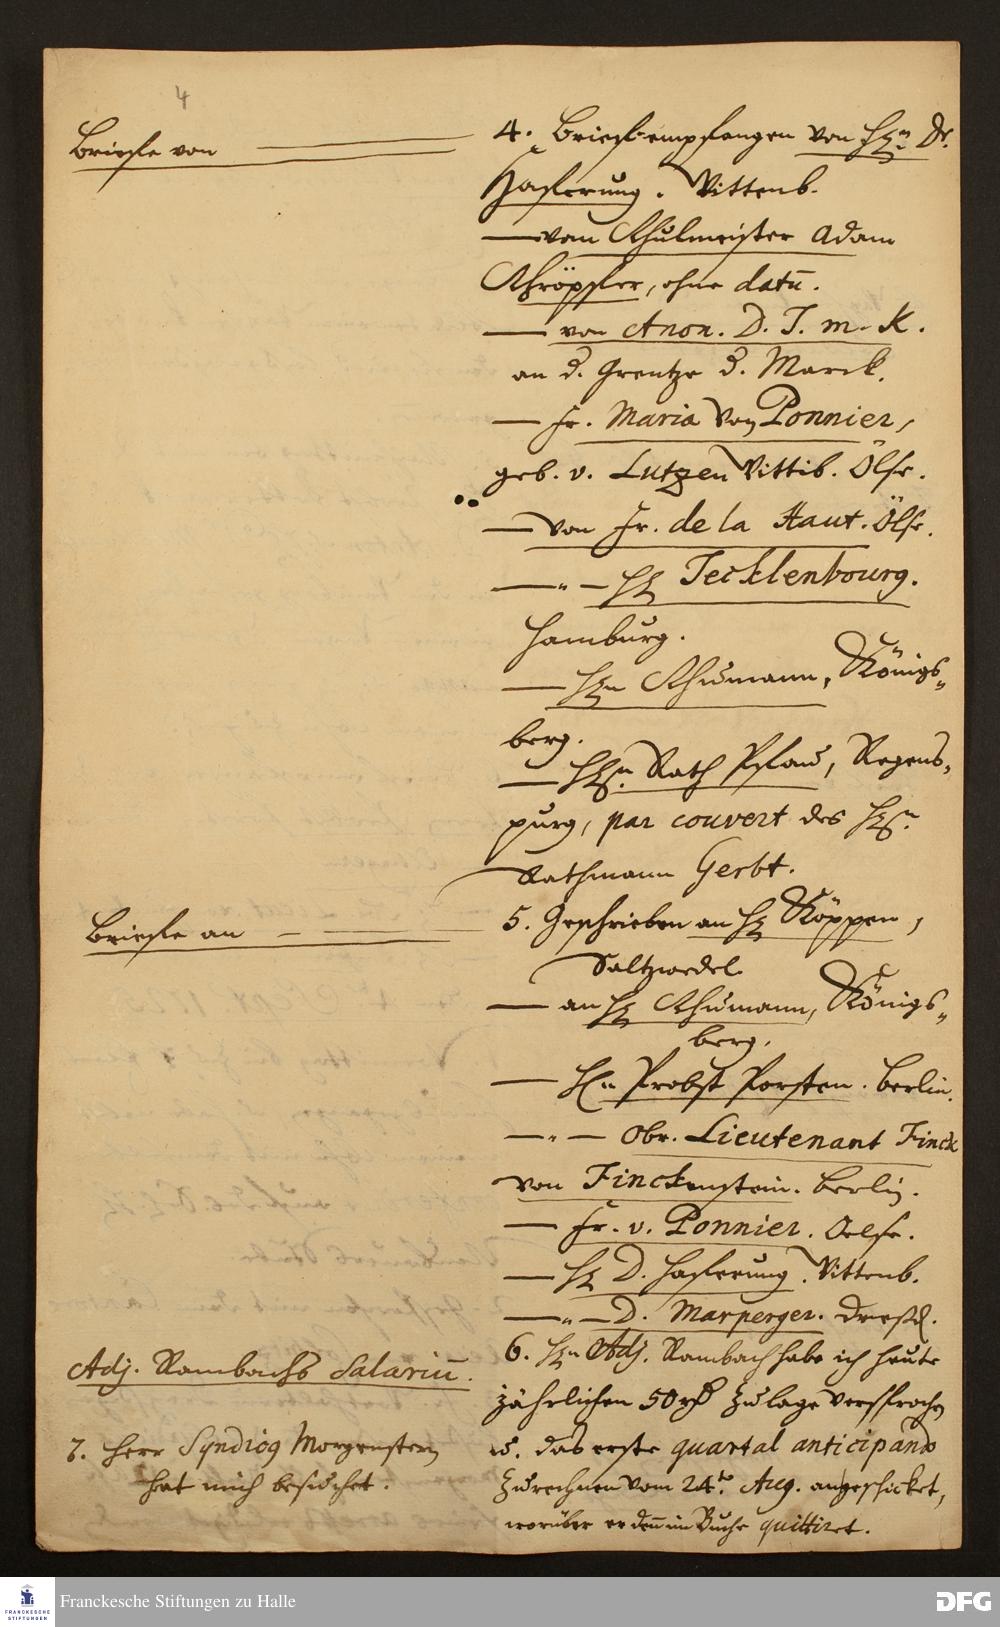 4
Briefe von
4. Briefe empfangen von Hhn. Dr.
Haferung. Wittenb.
— vom Schulmeister Adam
Schröpffer, ohne datū.
— von Anon. D. J. m. K.
an d. Grentze d. Marck.
— Fr. Maria von Ponnier,
geb. v. Lutzen Wittib. Ölse.
— von Fr. de la Haut. Ölse.
— " — H. Tecklenbourg.
Hamburg.
— Hn Schumann, Königs„
berg.
— Hhn. Rath Pfau, Regens„
purg, par couvert des Hhn.
Rathmann Gerbt.
Briefe an
5. Geschrieben an H. Köppen,
Saltzwedel
— an H. Schumann, Königs„
berg.
— Hn Probst Porsten. Berlin.
— " — Obr. Lieutenant Finck
von Finckenstein. Berlin.
— Fr. v. Ponnier. Oelse.
— H. D. Haferung. Wittenb.
— " — D. Marperger. Dresd.
Adj. Rambachs Salariū.
6. Hn Adj. Rambach habe ich heute
jährlichen 50 rth Zulage versprochen
u. das erste quartal anticipando
zurechnen vom 24ten Aug. angeschicket,
worüber er den im Buche quittiret.
7. Herr Syndicus Morgenstern
hat mich besuchet.
Franckesche Stiftungen zu Halle
FRANCKESCHE
STIFTUNGEN
DFG